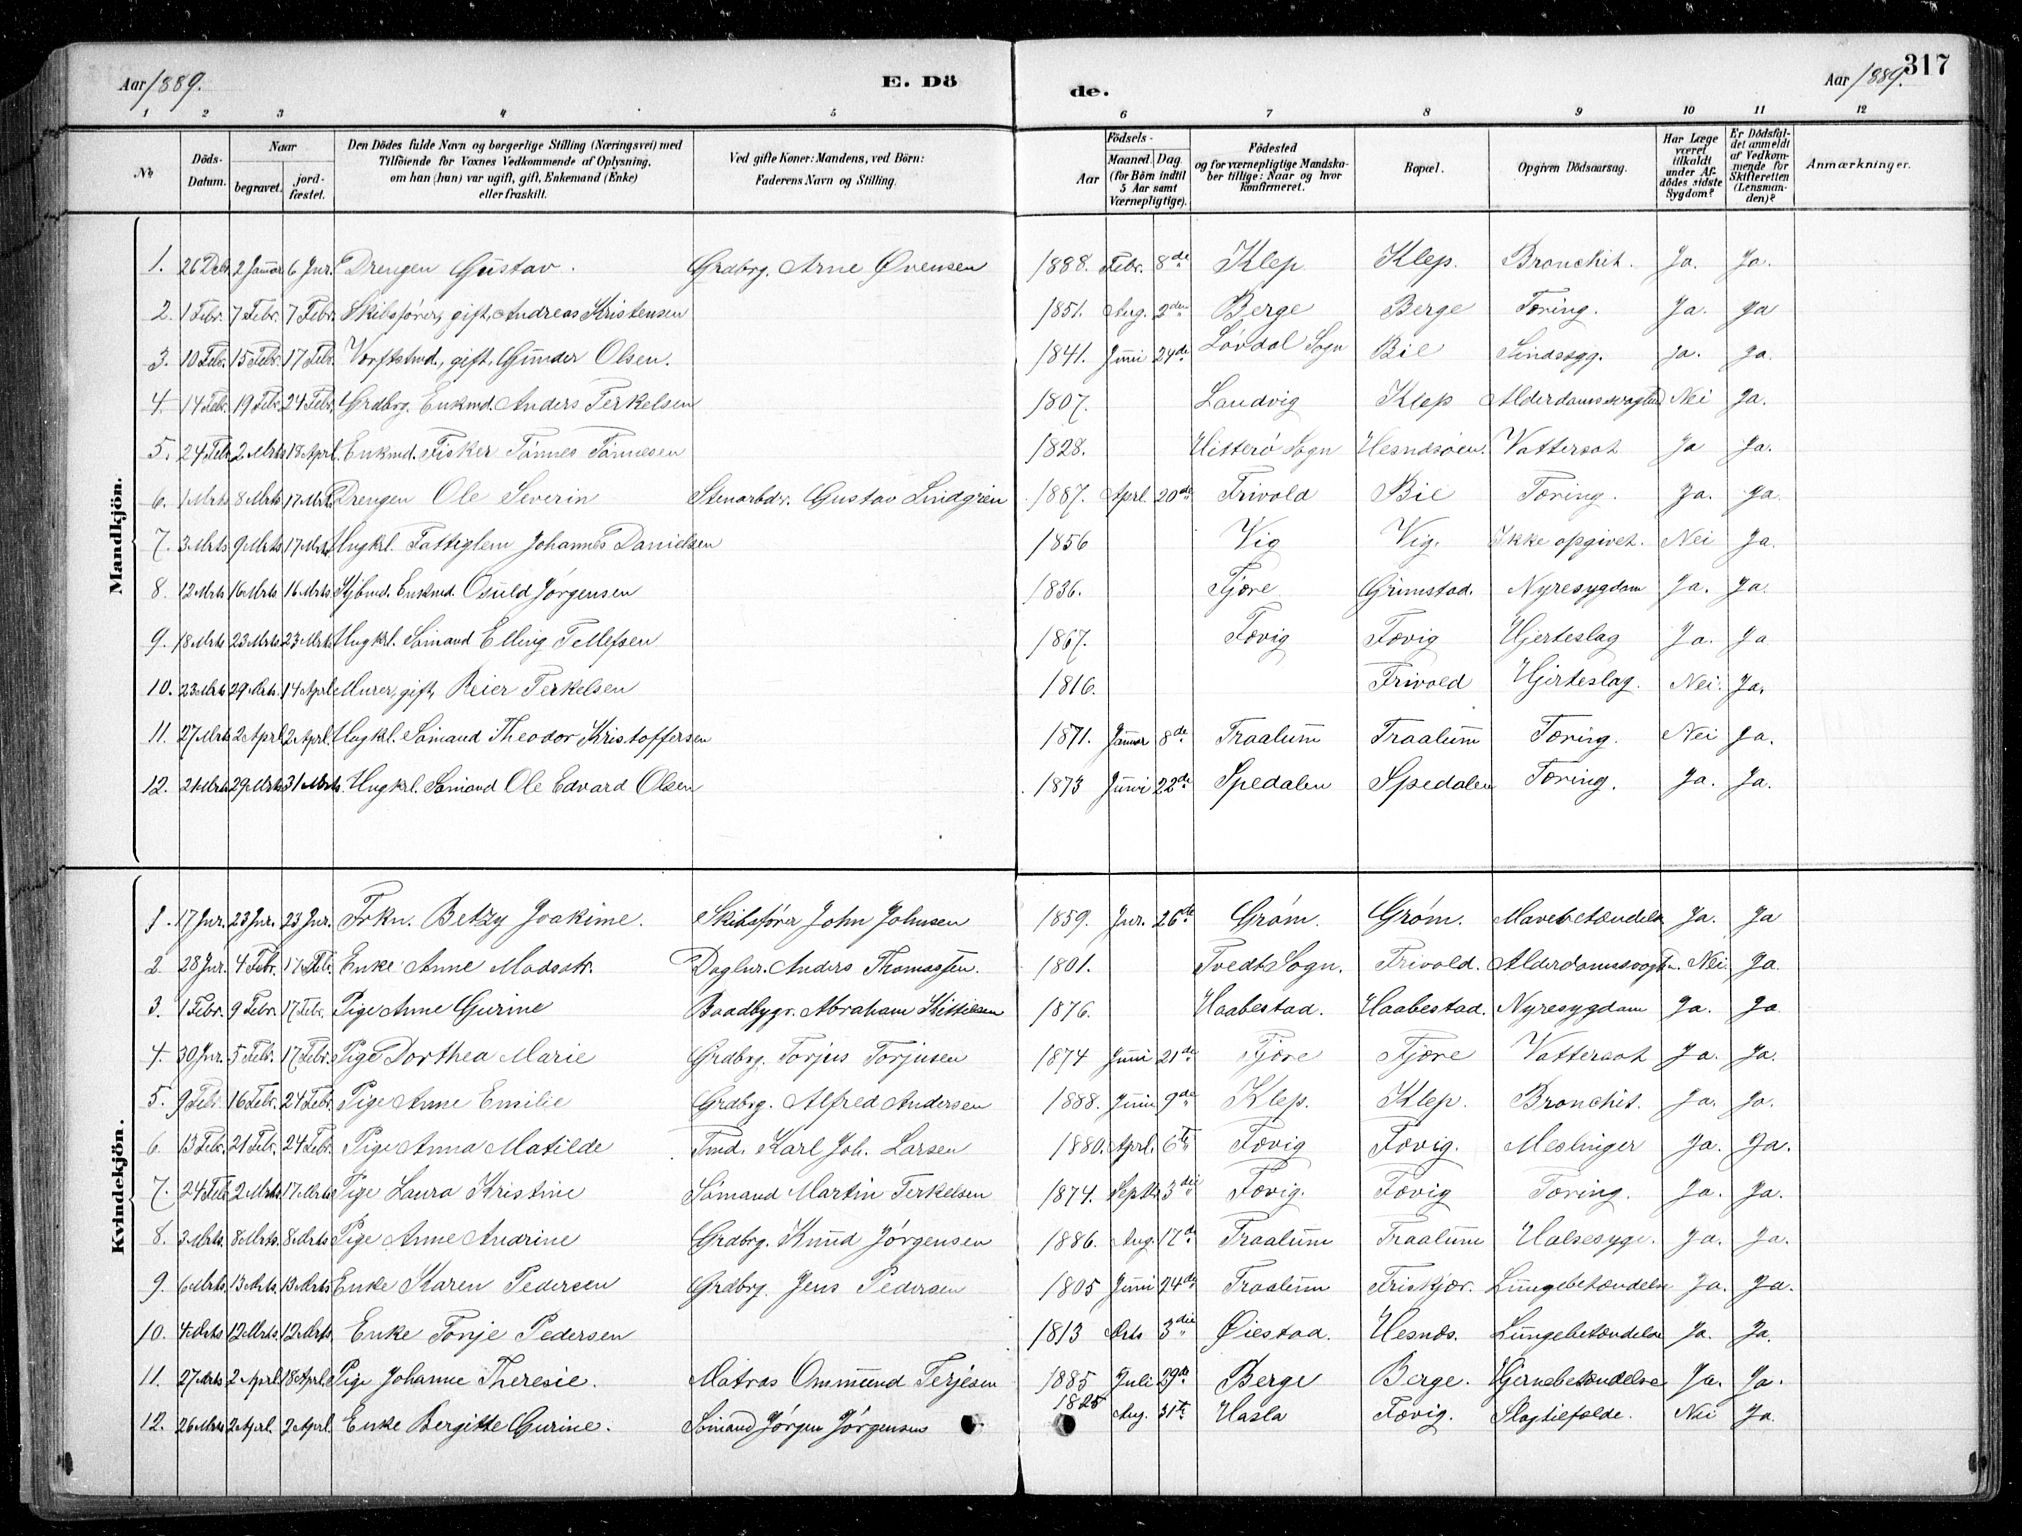 Aar 1889. E. Dö de. Aar 1889. 317
1 2 3 4 5 6 7 8 9 10 11 12
No
Döds-Datum.
Naar
begravet.
jordfæstet.
Den Dödes fulde Navn og borgerlige Stilling (Næringsvei) med
Tilföiende for Voxnes Vedkommende af Oplysning,
om han (hun) var ugift, gift, Enkemand (Enke)
eller fraskilt.
Ved gifte Koner: Mandens, ved Börn:
Faderens Navn og Stilling.
Födsels-
Aar
Maaned. Dag.
(for Börn indtil
5 Aar samt
Værnepligtige).
Födested
og for værnepligtige Mandska-
ber tillige: Naar og hvor
konfirmeret.
Bopæl.
Opgiven Dödsaarsag.
Har Læge
været
tilkaldt
under Af-
dödes sidste
Sygdom?
Er Dödsfal-
det anmeldt
af Vedkom-
mende for
Skifteretten
(Lensman-
den)?
Anmærkninger.
Mandkjön.
1. 26 Debr. 2 Januar 6 Jnr. Drengen Gustav. Grdbrg. Arne Øvensen 1888 Febr. 8de Klep Klep. Bronchit. Ja. Ja.
2. 1 Febr. 7 Febr. 7 Febr. Skibsfører, gift, Andreas Kristensen 1851. Aug. 2den Berge Berge Tæring. Ja. Ja
3. 10 Febr. 15 Febr. 17 Febr. Værftsmd., gift, Gunder Olsen. 1841. Juni 24de Løvdal Sogn Bie Sindssyg. Ja. Ja.
4. 14 Febr. 19 Febr. 24 Febr. Grdbrg. Enkmd. Anders Terkelsen 1807. Landvig Klep Alderdomssvaghed Nei Ja.
5. 24 Febr. 2 Mrts 18 Aprl. Enkmd. Fisker Tønnes Tønnesen 1828. Hitterø Sogn Hesnesøen. Vattersot Ja Ja.
6. 1 Mrts 8 Mrts 17 Mrts Drengen Ole Severin Stenarbdr. Gustav Lindgren 1887. Aprl. 20de Frivold Bie Tæring. Ja. Ja.
7. 3 Mrts 9 Mrts 17 Mrts Ungkrl. Fattiglem Johannes Danielsen 1856 Vig Vig. Ikke opgivet. Nei Ja.
8. 12 Mrts 16 Mrts 16 Mrts Kjbmd. Enkmd. Osuld Jørgensen 1836. Fjære Grimstad. Nyresygdom Ja. Ja.
9. 18 Mrts 23 Mrts 23 Mrts Ungkrl. Sømand Elling Tellefsen 1867. Fævig Fævig Hjerteslag Ja. Ja
10. 23 Mrts 29 Mrts. 14 Aprl Murer, gift, Reier Terkelsen 1816. Frivold Hjerteslag. Nei. Ja.
11. 27 Mrts 2 Aprl 2 Aprl. Ungkrl. Sømand Theodor Kristoffersen 1871. Januar 8de Traalum Traalum Tæring. Nei Ja.
12. 21 Mrts 29 Mrts 31 Mrts. Ungkrl. Sømand Ole Edvard Olsen 1873 Juni 22de Spedalen Spedalen Tæring. Ja. Ja.
Kvindekjön.
1. 17 Jnr. 23 Jnr. 23 Jnr. Frkn. Betzy Joakime. Skibsfører John Johnsen 1859. Jnr. 26te Grøm. Grøm. Mavebetændelse Ja. Ja
2 28 Jnr. 4 Febr. 17 Febr. Enke Anne Madsdtr. Daglnr. Anders Thomassen. 1801. Tvedt Sogn. Frivold. Nei Ja.
3. 1 Febr. 9 Febr. 17 Febr. Pige Anne Gurine Baadbygr. Abraham Kittilsen 1876. Haabestad. Haabestad. Nyresygdom Ja. Ja
4. 30 Jnr. 5 Febr. 17 Febr. Pige Dorthea Marie Grdbrg. Torjus Torjusen 1874 Juni 21de Fjære Fjære Vattersot Ja. Ja.
5. 9 Febr. 16 Febr. 24 Febr. Pige Anne Emilie Grdbrg. Alfred Andersen 1888. Juni 9de Klep. Klep. Bronchit. Ja. Ja.
6. 13 Febr. 21 Febr. 24 Febr. Pige Anna Matilde Tmd. Karl Joh. Larsen 1880. Aprl. 6te Fævig Fævig. Meslinger Ja. Ja.
7. 24 Feb 2 Mrts 17 Mrts Pige Laura Kristine Sømand Martin Terkelsen 1874. Septb. 3die Fævig. Fævig Tæring. Ja. Ja.
8. 3 Mrts. 8 Mrts. 8 Mrts Pige Anne Andrine Grdbrg. Knud Jørgensen 1886. Aug. 17de Traalum Traalum Halsesyge. Ja. Ja.
9. 6 Mrts. 13 Mrts. 13 Mrts Enke Karen Pedersen Grdbrg. Jens Pedersen 1805 Juni 24de Traalum Friskjær. Lungebetændelse Ja. Ja.
10. 4 Mrts 12 Mrts. 12 Mrts. Enke Tonje Pedersen 1813 Mrts 3die Øiestad. Hesnæs. Lungebetændelse Ja. Ja.
11. 27 Mrts 2 Aprl 18 Aprl. Pige Johanne Theresie. Matros Ommund Terjesen 1885 Juli 29de Berge Berge. Hjernebetændelse Ja. Ja.
12. 26 Mrts 2 Aprl. 2 Aprl. Enke Bergitte Gurine. Sømand Jørgen Jørgensens 1825 Aug. 31te Hasla Fævig. Slagtilfælde. Nei Ja.